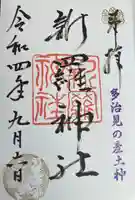 奉拝
多治見の産土神
新羅神社
令和四年九月